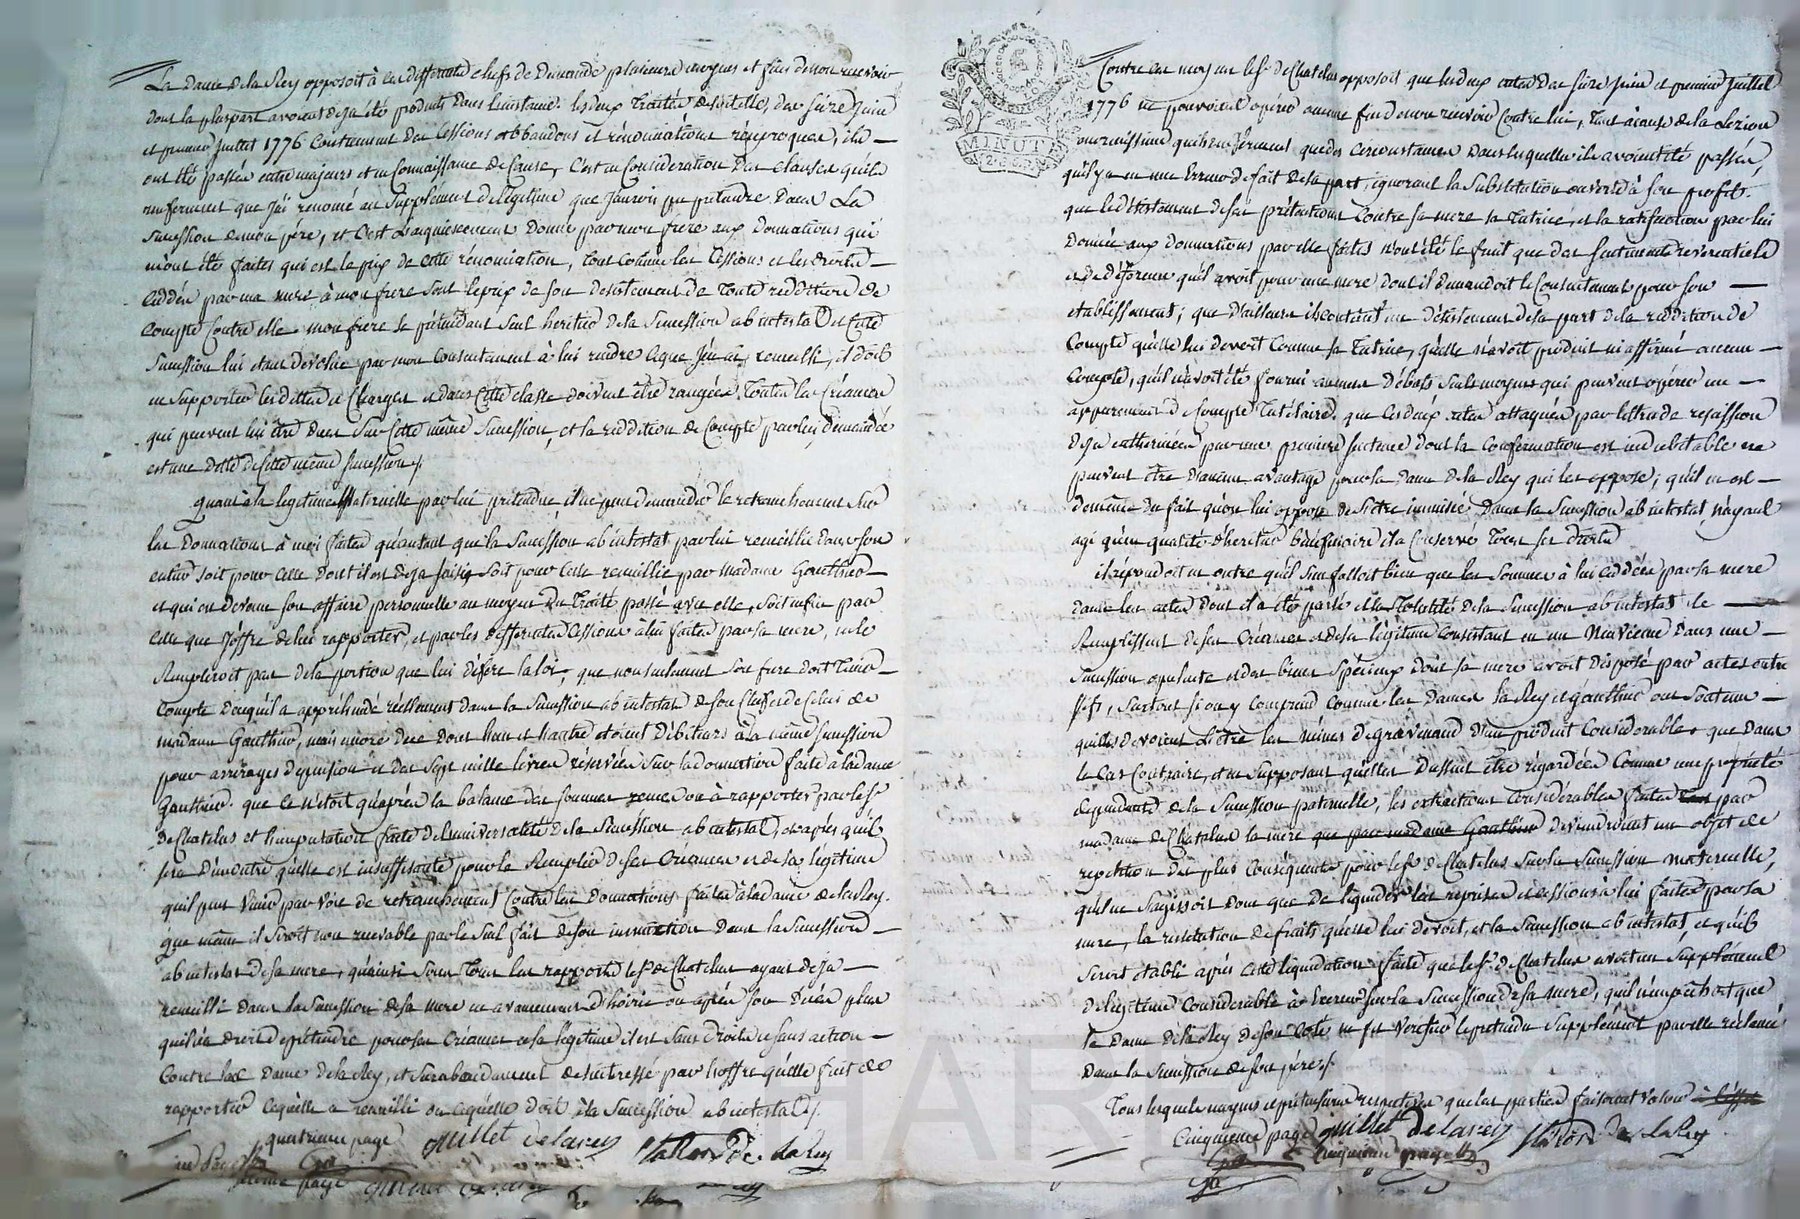 La Dame de la Rey opposoit à ces differents chefs de demande plusieurs moyens et fins de non recevoir
dont la pluspart avoient deja été produits dans l'instance. les deux Traités de srtelles, des seize Juin
et premier Juillet 1776 Contiennent des Cessions abbandons et rénonciations réciproques, ils
ont été passés entre majeurs et en Connoissance de Cause, C'est en Considération des Clauses qu'ils
renferment que j'ai renoncé au Supplément de legitime que j'aurois pu prétendre dans La
Succession de mon père, et C'est l'acquiescement donné par mon frere aux donnations qui
m'ont été faites qui est le prix de cette rénonciation, tout comme les Cessions et les droits
Cédés par ma mere à mon frere sont le prix de son desistement de toute reddition de
Compte Contre elle. mon frere se prétendant seul heritier de la Succession ab intestat et Cette
Succession lui etant dévolue par mon Consentement à lui rendre ce que j'en ai recueilli, il doit
en Supporter les dettes et Charges et dans Cette Classe doivent être rangées toutes les Créances
qui peuvent lui être dues sur Cette même Succession, et la reddition de Compte par lui demandée
est une dette de cette même Succession ./.
Quant à la legitime Maternelle par lui prétendue, il ne peut demander le retranchement sur
les Donnations à moi faites qu'autant que la Succession ab intestat par lui recueillie dans son
entier soit pour celle dont il est deja saisi soit pour Celle recueillie par madame Gauthier
et qui est devenue son affaire personnelle au moyen du Traité passé avec elle, soit enfin par
Celle que j'offre de lui rapporter, et par les differentes Cessions à lui faites par sa mere, ne le
Rempliroit pas de la portion que lui défere la loi, que non seulement son frere doit tenir
Compte de ce qu'il a appréhendé réellement dans la Succession ab intestat de son Chef et de Celui de
madame Gauthier, mais encore de ce dont l'un et l'autre etoient débiteurs à la même Succession
pour arrérages de pension et des Sept mille livres réservées sur la donnation faite à la dame
Gauthier. que Ce n'étoit qu'après la balance des sommes reçues ou à rapporter par le Sr
de Chatelus et l'imputation faite de l'universalité de la Succession ab intestat, et après qu'il
sera démontré qu'elle est insuffisante pour le Remplir de ses Créances et de sa légitime
qu'il peut venir par voie de retranchement Contre les Donnations faites à la dame de la Rey.
que même il seroit non recevable par le seul fait de son immixtion dans la Succession
ab intestat de sa mere, qu'ainsi sous tous les rapports le Sr de Chatelus ayant deja
recueilli dans la Succession de sa mere en avancement d'hoirie ou après son décès plus
qu'il n'a droit de prétendre pour ses Créances et sa légitime il est sans droit et sans action
Contre la Dame de la Rey, et surabondamment desintéressé par l'offre qu'elle fait de
rapporter ce qu'elle a recueilli ou ce qu'elle doit à la Succession ab intestat ./.
quatrieme page Guillet delarey StaRosE de LaRey
Contre ces moyens le Sr de Chatelus opposoit que les deux actes des seize Juin et premier Juillet
1776 ne pouvoient opérer aucune fin de non recevoir Contre lui, tant à cause de la Lezion
enormissime qu'ils renferment, que des Circonstances dans lesquelles ils avoient été passés,
MINUTE
qu'il y a eu une Erreur de fait de sa part, ignorant la Substitution ouverte à son profit.
que le désistement de ses prétentions Contre sa mere sa Tutrice, et la ratification par lui
Donnée aux Donnations par elle faites n'ont été le fruit que des sentiments reverentiels
et de déference qu'il avoit pour une mere dont il demandoit le Consentement pour son
etablissement; que d'ailleurs il contient un désistement de sa part de la reddition de
Compte qu'elle lui devoit Comme sa Tutrice, qu'elle n'avoit produit ni affirmé aucun
Compte, qu'il n'avoit été fourni aucuns débats seuls moyens qui peuvent opérer un
appurement de Compte Tutélaire. que Ces deux actes attaqués par lettres de rescission
deja enthérinées par une premiere sentence dont la Confirmation est indubitable ne
peuvent être d'aucun avantage pour la dame de la Rey qui les oppose; qu'il en est
de même du fait qu'on lui oppose de s'etre immiscé dans la Succession ab intestat, n'ayant
agi qu'en qualité d'heritier bénéficiaire il a Conservé tous ses droits
il répondoit en outre qu'il s'en falloit bien que les Sommes à lui Cédées par sa mere
dans les actes dont il a été parlé et la Totalité de la Succession ab intestat le
Remplissent de ses Créances et de sa légitime Consistant en un Neuvieme dans une
Succession opulente et des biens Spécieux dont sa mere avoit disposé par actes entre
Vifs, surtout si on y Comprend Comme les Dames la Rey et Gauthier ont soutenu
qu'elles devoient l'etre les mines de grâvenand d'un produit Considerable. que dans
le Cas Contraire, et en supposant qu'elles dussent être régardées Comme une propriété
dépendante de la Succession paternelle, les extractions Considerables faites par
madame de Chatelus la mere que par madame Gauthier deviendroient un objet de
repetition des plus Conséquents pour le Sr de Chatelus sur la Succession maternelle,
qu'il ne s'agissoit donc que de liquider les reprises et cessions à lui faites par sa
mere, la restitution de fruits qu'elle lui devoit, et la Succession ab intestat, et qu'il
seroit etabli après Cette liquidation faite que le Sr de Chatelus avoit un Supplément
de legitime Considerable à Exercer sur la Succession de sa mere, qu'il n'empechoit que
la Dame de la Rey de son Coté ne fit Verifier le prétendu Supplément par elle réclamé
dans la Succession de son père ./.
Tous lesquels moyens et prétentions respectives que les parties faisoient valoir
Cinquieme page Guillet delarey StaRosE de LaRey